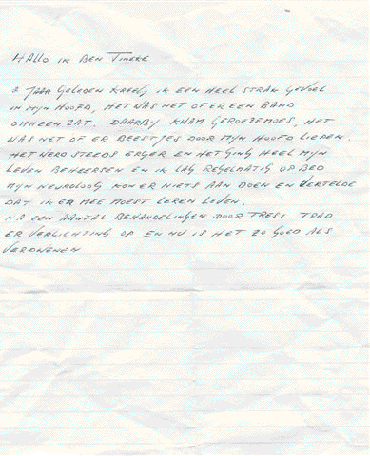 HALLO IK BEN TINEKE
2 JAAR GELEDEN KREEG IK EEN HEEL STRAK GEVOEL
IN MIJN HOOFD, HET WAS NET OF ER EEN BAND
OMHEEN ZAT. DAARBIJ KWAM GEROEZEMOES, HET
WAS NET OF ER BEESTJES DOOR MIJN HOOFD LIEPEN.
HET WERD STEEDS ERGER EN HET GING HEEL MIJN
LEVEN BEHEERSEN EN IK LAG REGELMATIG OP BED
MIJN NEUROLOOG KON ER NIETS AAN DOEN EN VERTELDE
DAT IK ER MEE MOEST LEREN LEVEN.
NA EEN AANTAL BEHANDELINGEN DOOR TRESI TRAD
ER VERLICHTING OP EN NU IS HET ZO GOED ALS
VERDWENEN